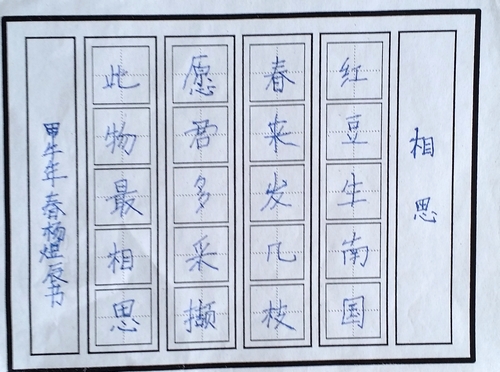 相思
红豆生南国
春来发几枝
愿君多采撷
此物最相思
甲午年春杨煜辰书